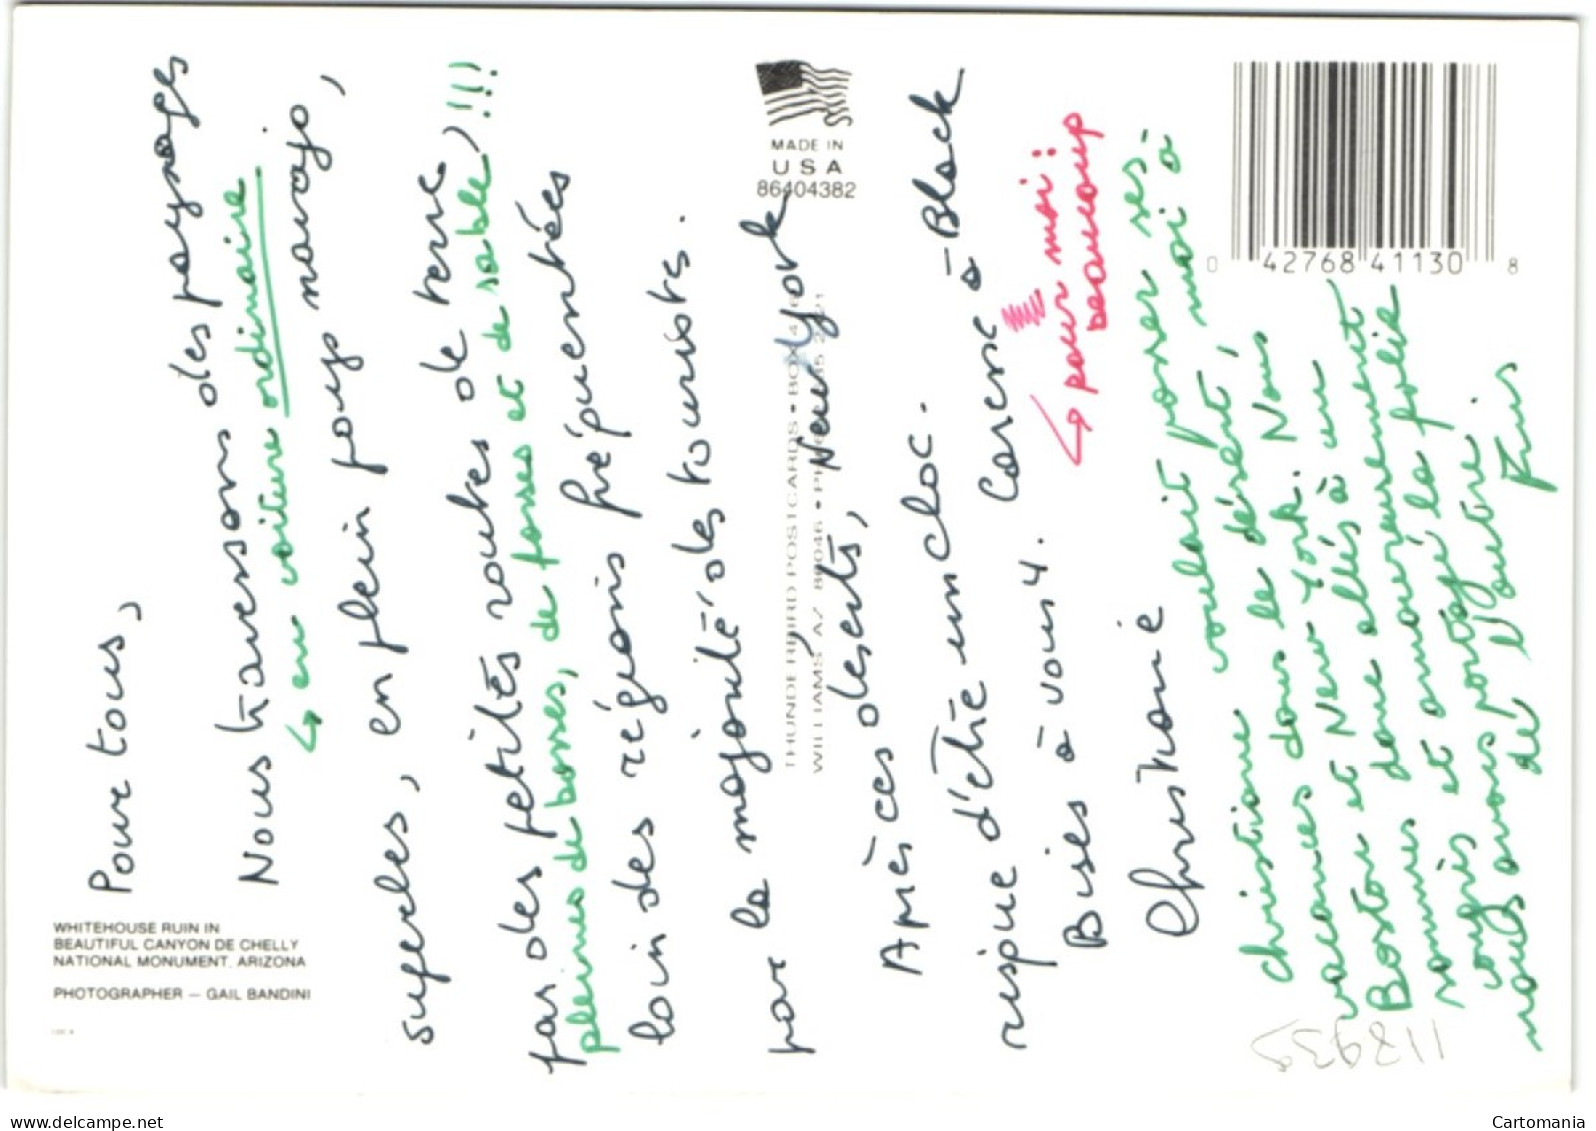 Pour tous,
Nous traversons des paysages
↳ en voiture ordinaire.
superbes, en plein pays navajo,
par des petites routes de terre
pleines de bosses, de fosses et de sable) !!!
loin des régions fréquentées
par la majorité des touristes.
Après ces déserts, New York
risque d'être un choc.
Bises à vous 4. Caresse à Black
↳ pour moi :
beaucoup
Christiane
Christiane voulait passer ses
vacances dans le désert, moi à
Boston et New York. Nous
sommes donc allés à un
et
nous avons partagé
de l'autre.
WHITEHOUSE RUIN IN
BEAUTIFUL CANYON DE CHELLY
NATIONAL MONUMENT, ARIZONA
PHOTOGRAPHER — GAIL BANDINI
MADE IN
USA
86404382
THUNDERBIRD POSTCARDS • BOX
WILLIAMS AZ 86046 •
0 42768 41130 8
117939
delcampe.net
Cartomania